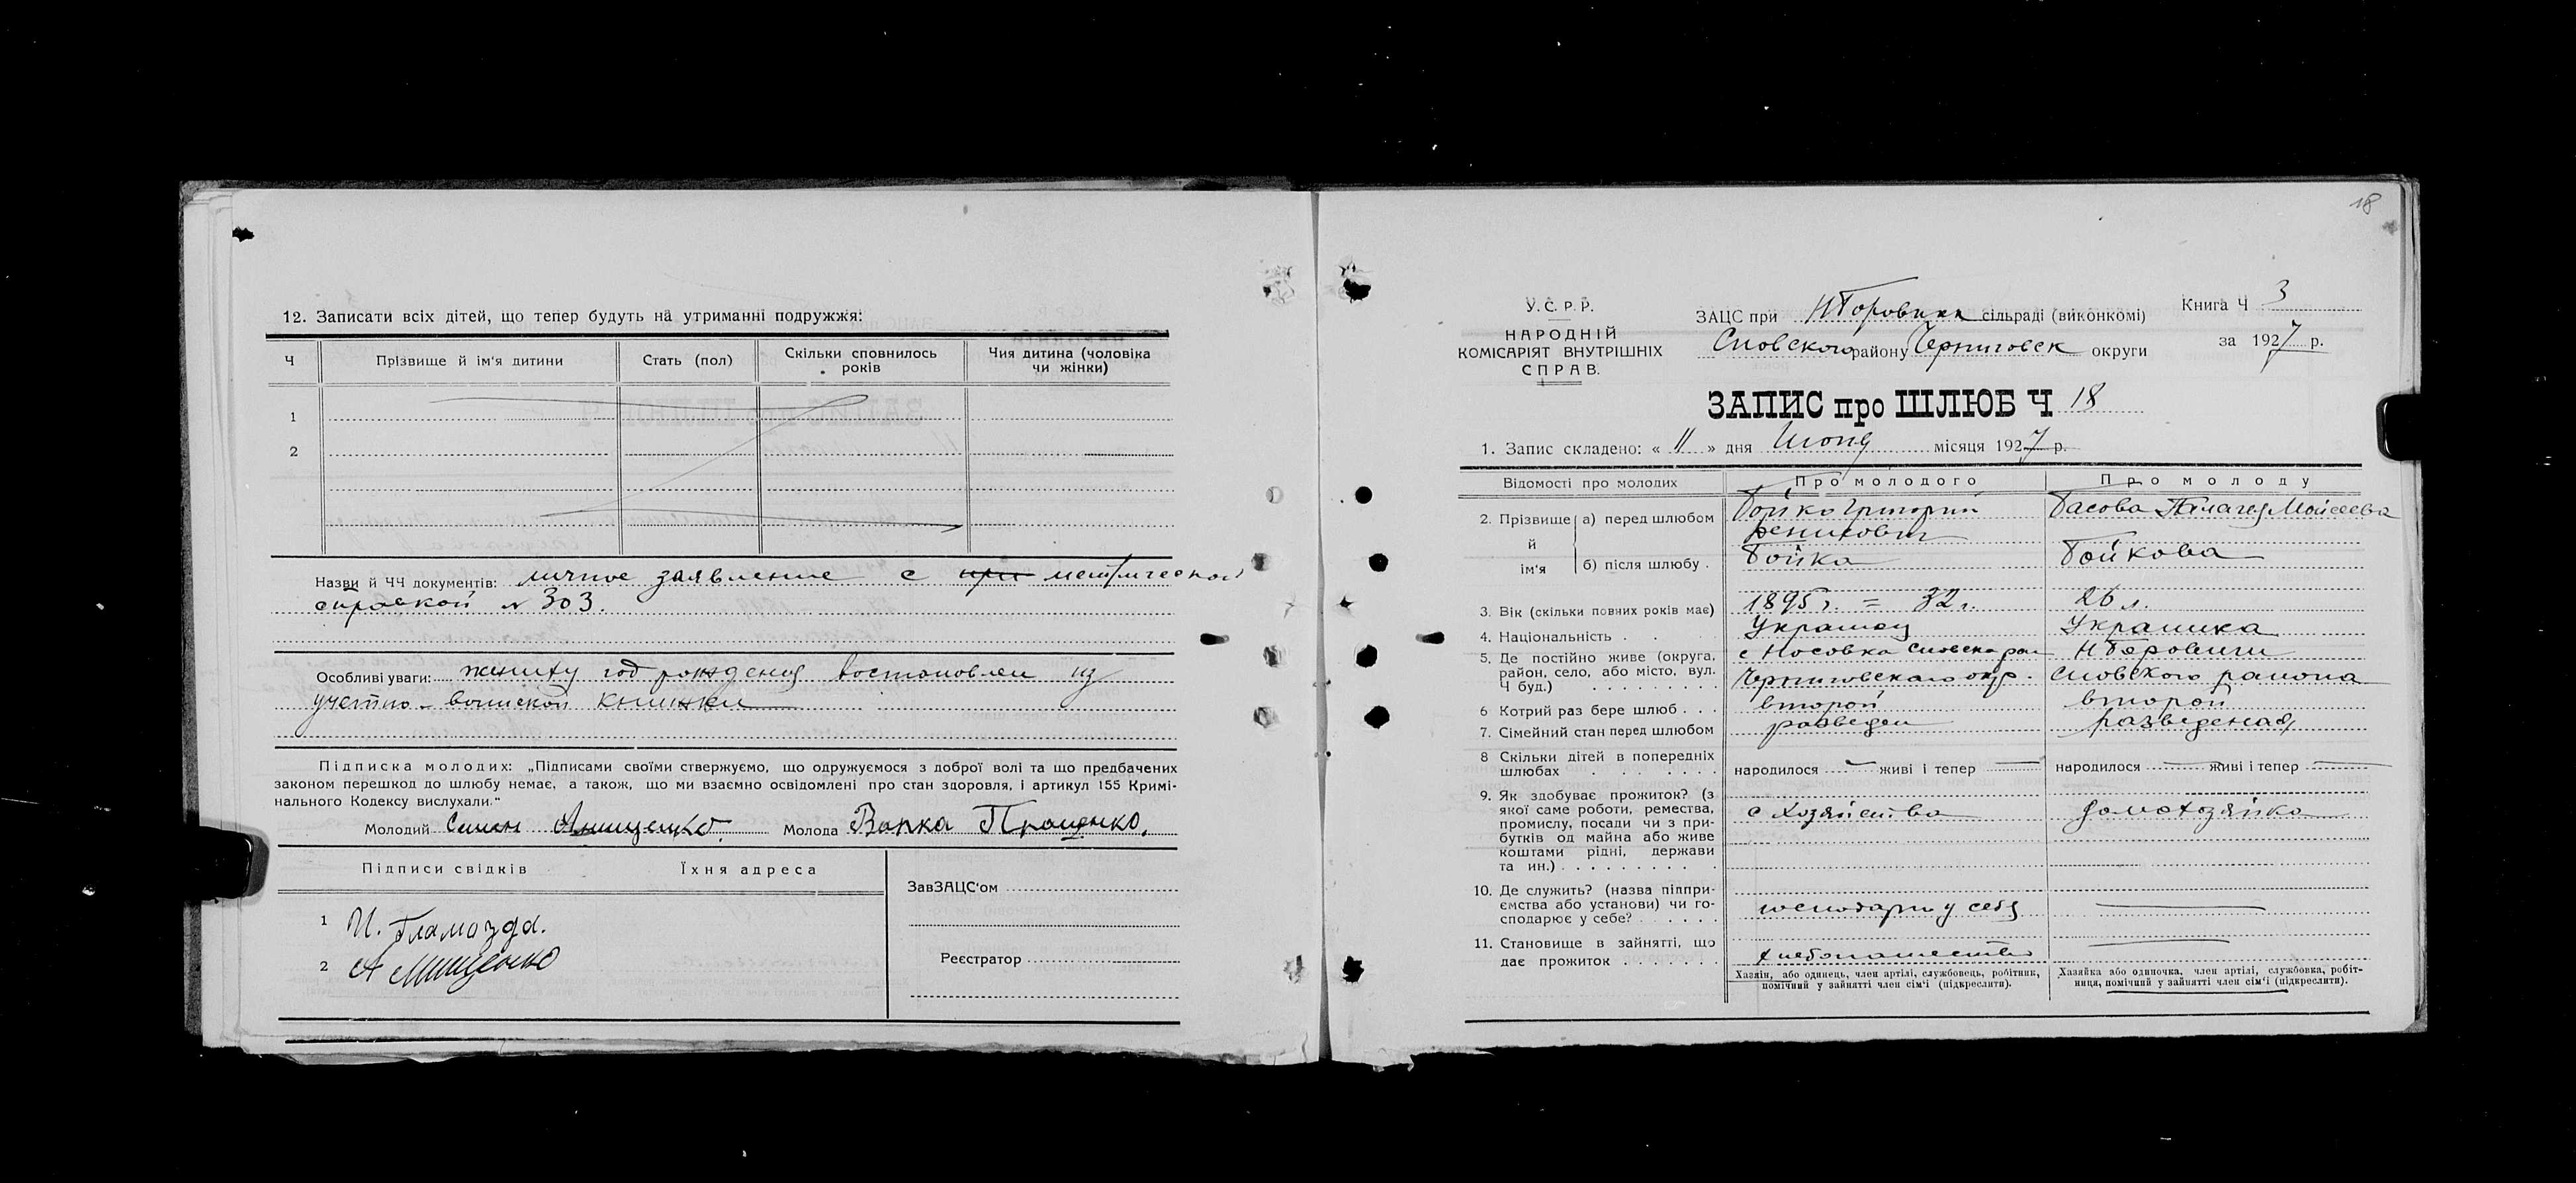 12. Записати всіх дітей, що тепер будуть на утриманні подружжя:
Ч
Прізвище й ім'я дитини
Стать (пол)
Скільки сповнилось
років
Чия дитина (чоловіка
чи жінки)
1
2
Назви й ЧЧ документів: личное заявление с при метрической
справкой № 303.
Особливі уваги: жениху год рождения востановлен из
учетно-воинской книжки
Підписка молодих: „Підписами своїми стверджуємо, що одружуємося з доброї волі та що предбачених
законом перешкод до шлюбу немає, а також, що ми взаємно освідомлені про стан здоровля, і артикул 155 Кримі-
нального Кодексу вислухали."
Молодий Семен Анищенко. Молода Варка Прощенко.
Підписи свідків
Їхня адреса
1 И. Гламазда.
2
ЗавЗАЦС'ом
Реєстратор
18
У.С.Р.Р.
НАРОДНІЙ
КОМІСАРІЯТ ВНУТРІШНІХ
СПРАВ.
ЗАЦС при сільраді (виконкомі)
Сновского району Черниговск округи
Книга Ч 3
за 1927 р.
ЗАПИС про ШЛЮБ Ч 18
1. Запис складено: « 11 » дня місяця 1927 р.
Відомості про молодих
Про молодого
Про молоду
2. Прізвище й ім'я
а) перед шлюбом
Бойко Григорий
Денисович
Басова Палагея Моисеева
б) після шлюбу
Бойка
Бойкова
3. Вік (скільки повних років має)
1895 г. = 32 г.
26 л.
4. Національність
Украинец
Украинка
5. Де постійно живе (округа,
район, село, або місто, вул.
Ч буд.)
с Носовка Сновска рай
Черниговскаго окр.
Н Боровичи
Сновского района
6 Котрий раз бере шлюб
второй
второй
7. Сімейний стан перед шлюбом
разведен
разведеная
8 Скільки дітей в попередніх
шлюбах
народилося — живі і тепер —
народилося — живі і тепер —
9. Як здобуває прожиток? (з
якої саме роботи, ремества,
промислу, посади чи з при-
бутків од майна або живе
коштами рідні, держави
та ин.)
с хозяйства
домохозяйка
10. Де служить? (назва підпри-
ємства або установи) чи го-
сподарює у себе?
господарит у себя
—
11. Становище в зайнятті, що
дає прожиток
хлебопашество
—
Хазяїн, або одинець, член артілі, службовець, робітник,
помічний у зайнятті член сім'ї (підкреслити).
Хазяйка або одиночка, член артілі, службовка, робіт-
ниця, помічний у зайнятті член сім'ї (підкреслити).